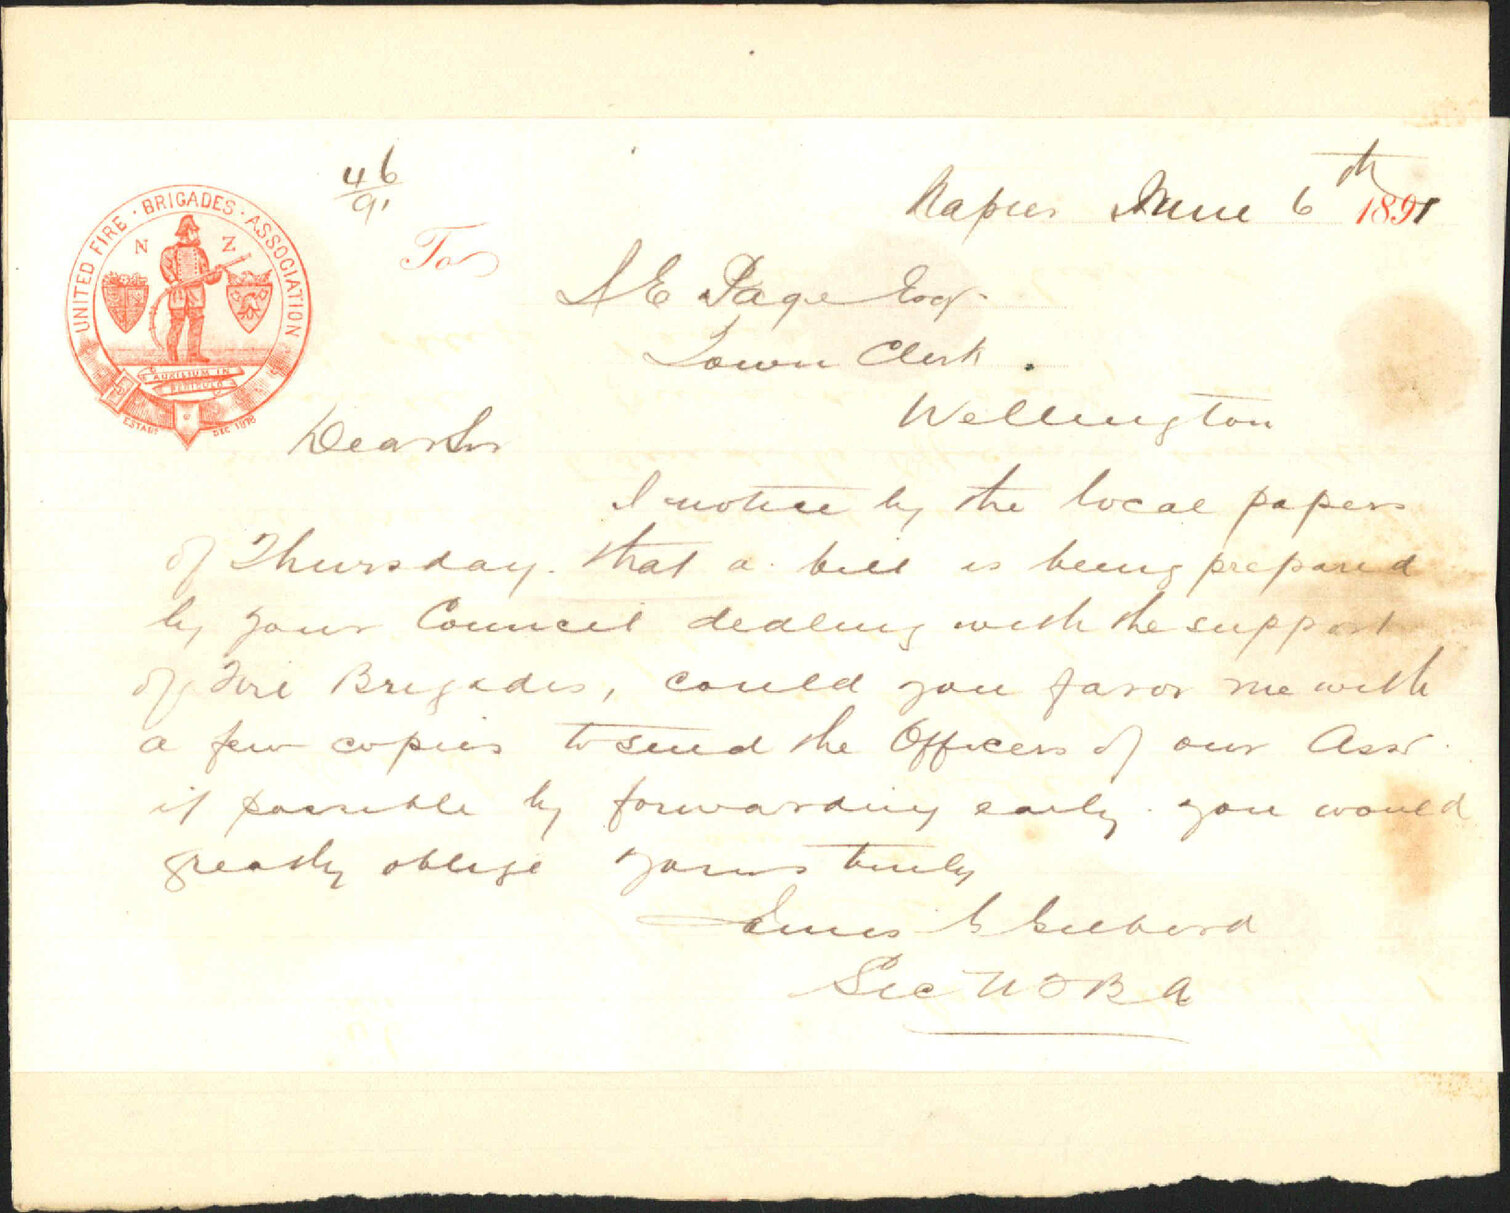 UNITED FIRE · BRIGADES · ASSOCIATION
N Z
AUXILIUM IN
PERICULO
ESTABD DEC 1878
46
91
Napier June 6th 1891
To
A E Page Esqr.
Town Clerk.
Wellington
Dear Sir
I notice by the local papers
of Thursday. that a bill is being prepared
by your Council dealing with the support
of Fire Brigades, could you favor me with
a few copies to send the Officers of our Assn.
if possible by forwarding early. you would
greatly oblige yours truly
James G
Sec U F B A